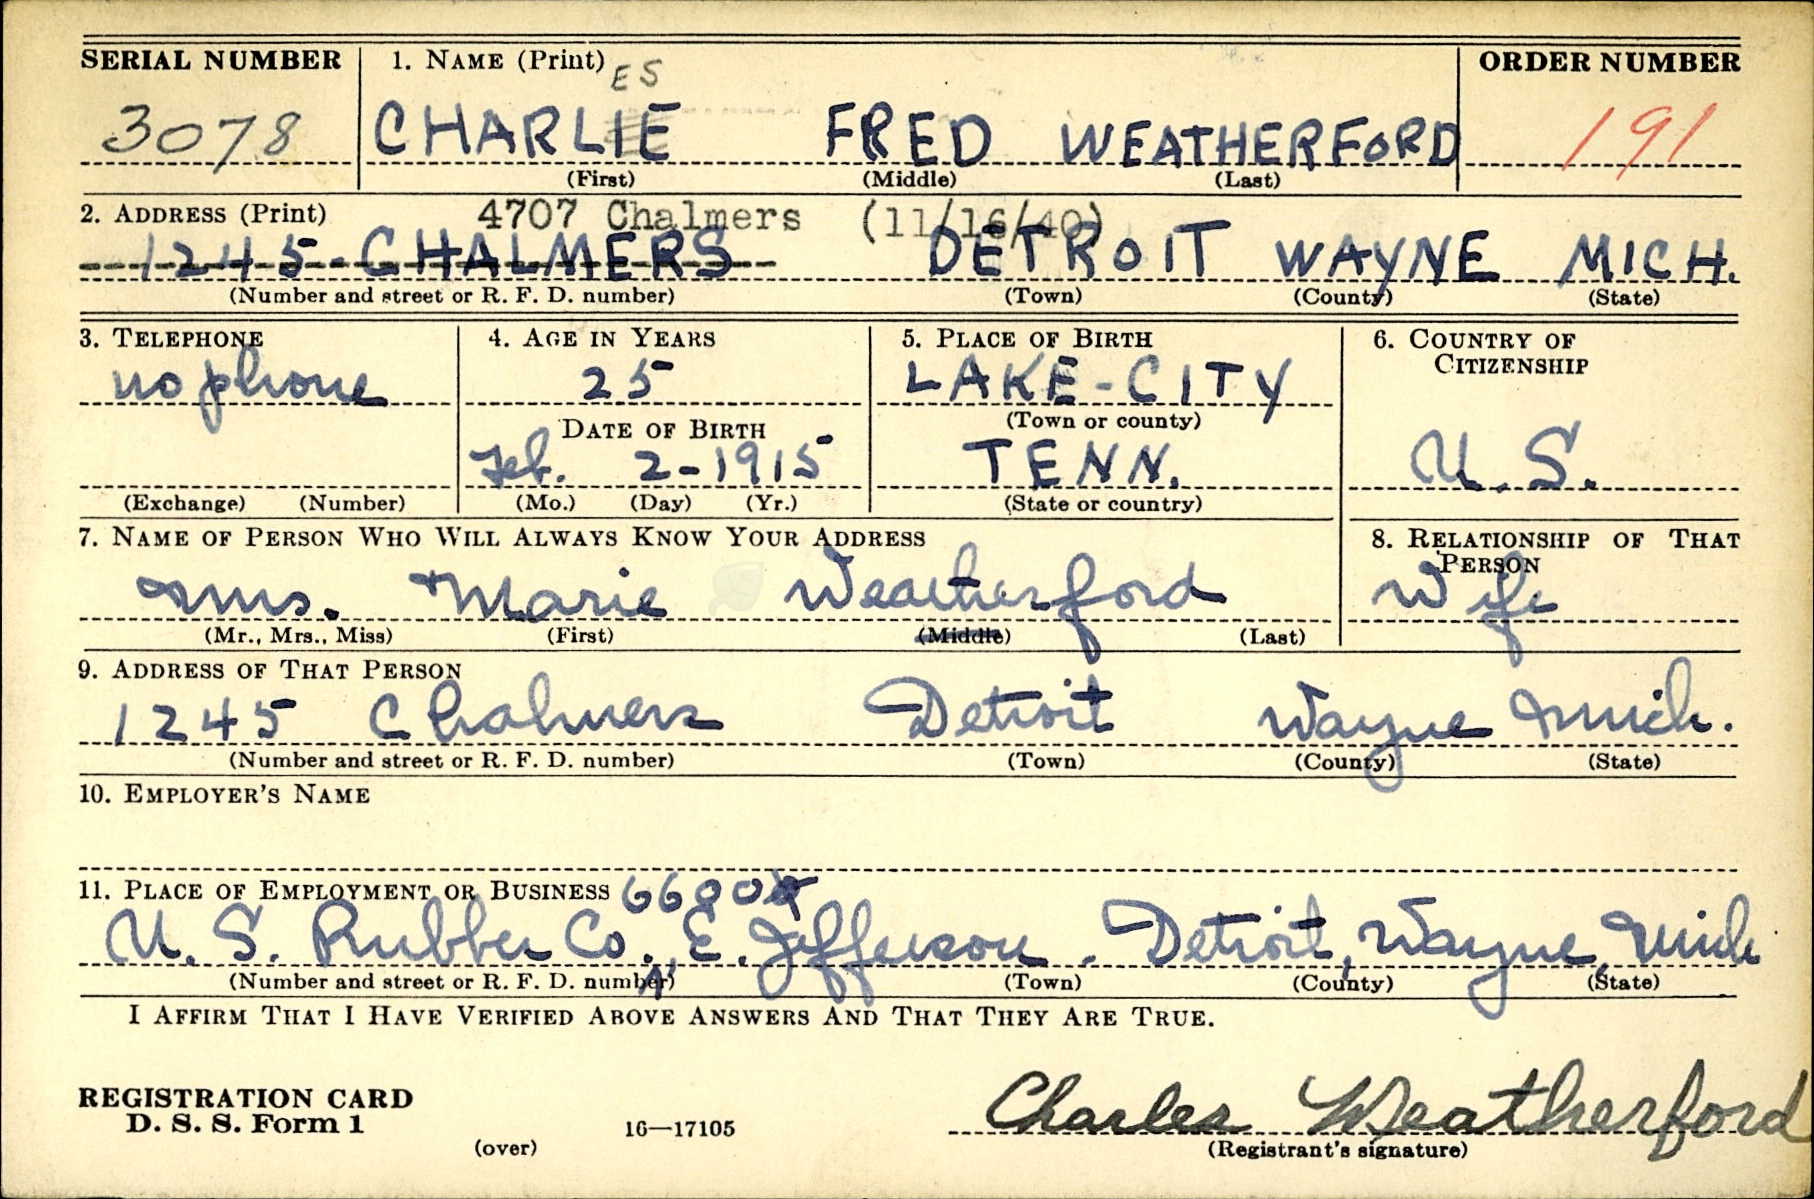 SERIAL NUMBER 1. NAME (Print) ES ORDER NUMBER
3078 CHARLIE FRED WEATHERFORD 191
(First) (Middle) (Last)
2. ADDRESS (Print) 4707 Chalmers (11/16/40)
1245-CHALMERS DETROIT WAYNE MICH.
(Number and street or R. F. D. number) (Town) (County) (State)
3. TELEPHONE 4. AGE IN YEARS 5. PLACE OF BIRTH 6. COUNTRY OF
CITIZENSHIP
no phone 25 LAKE-CITY
(Town or county)
DATE OF BIRTH
Feb. 2-1915 TENN. U. S.
(Exchange) (Number) (Mo.) (Day) (Yr.) (State or country)
7. NAME OF PERSON WHO WILL ALWAYS KNOW YOUR ADDRESS 8. RELATIONSHIP OF THAT
PERSON
Mrs. Marie Weatherford Wife
(Mr., Mrs., Miss) (First) (Middle) (Last)
9. ADDRESS OF THAT PERSON
1245 Chalmers Detroit Wayne Mich.
(Number and street or R. F. D. number) (Town) (County) (State)
10. EMPLOYER'S NAME
11. PLACE OF EMPLOYMENT OR BUSINESS 6600
U. S. Rubber Co., E. Jefferson. Detroit, Wayne, Mich
(Number and street or R. F. D. number) (Town) (County) (State)
I AFFIRM THAT I HAVE VERIFIED ABOVE ANSWERS AND THAT THEY ARE TRUE.
REGISTRATION CARD
D. S. S. Form 1 16—17105 Charles Weatherford
(over) (Registrant's signature)